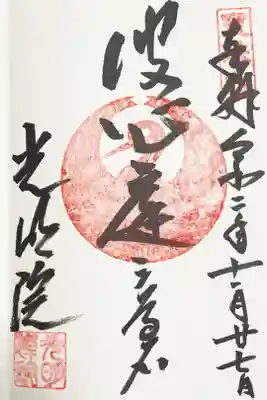 奉拝 令和二年十一月廿七日
波心庭 三尊石
光明院